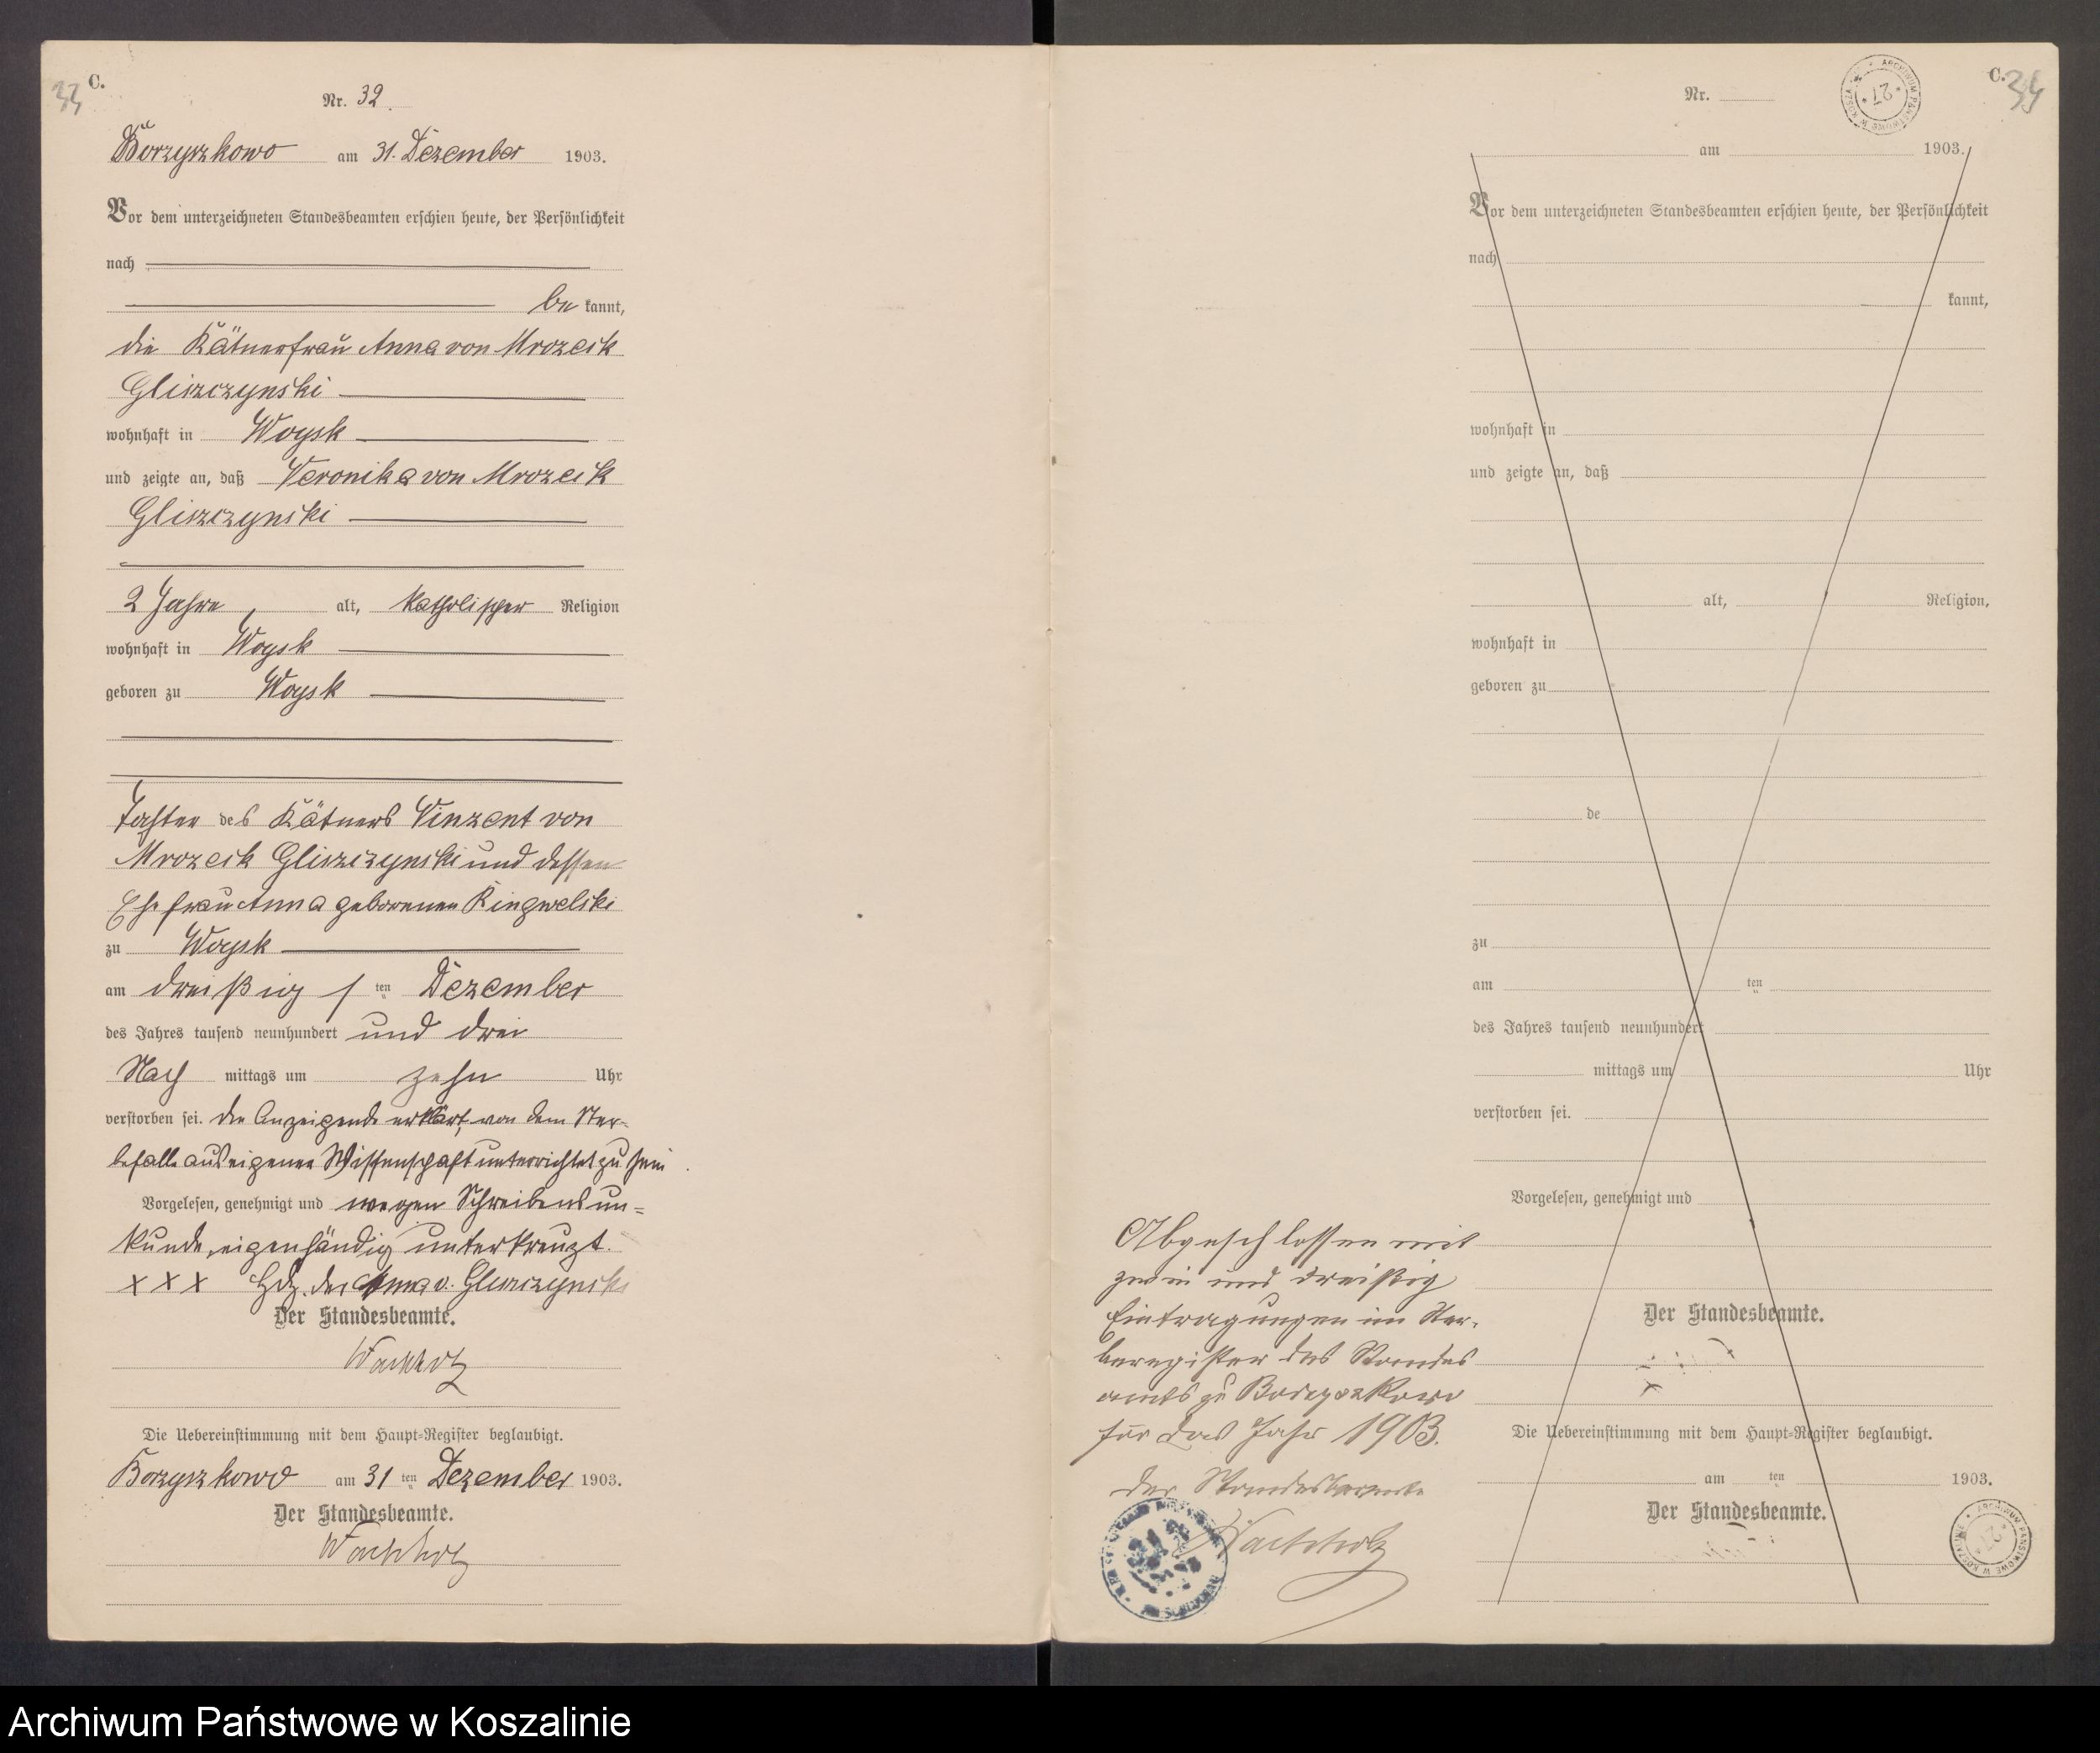 33 C.
Nr. 32.
Borzyszkowo am 31. Dezember 1903.
Vor dem unterzeichneten Standesbeamten erschien heute, der Persönlichkeit
nach
be kannt,
die Kätnerfrau Anna von Mrozeik
Gliszczynski
wohnhaft in Woysk
und zeigte an, daß Veronika von Mrozeik
Gliszczynski
2 Jahre, alt, katholischer Religion
wohnhaft in Woysk
geboren zu Woysk
Tochter des Kätners Vinzent von
Mrozeik Gliszczynski und dessen
Ehefrau Anna geborenen Ringwelski
zu Woysk
am dreißig ten Dezember
des Jahres tausend neunhundert und drei
Nach mittags um zehn Uhr
verstorben sei. Die Anzeigende erklärt, von dem Ster-
befalle aus eigener Wissenschaft unterrichtet zu sein.
Vorgelesen, genehmigt und wegen Schreibensun=
kunde, eigenhändig unterkreuzt.
XXX Hdz. der Anna v. Gliszczynski
Der Standesbeamte.
Wachholz
Die Uebereinstimmung mit dem Haupt-Register beglaubigt.
Borzyszkowo am 31 ten Dezember 1903.
Der Standesbeamte.
Wachholz
C. 34
Nr.
ARCHIWUM PAŃSTWOWE W KOSZALINIE
27
am 1903.
Vor dem unterzeichneten Standesbeamten erschien heute, der Persönlichkeit
nach
kannt,
wohnhaft in
und zeigte an, daß
alt, Religion,
wohnhaft in
geboren zu
de
zu
am ten
des Jahres tausend neunhundert
mittags um Uhr
verstorben sei.
Vorgelesen, genehmigt und
Abgeschlossen mit
zwei und dreißig
Eintragungen im Ster-
beregister des Standes
amts zu Borzyszkowo
für das Jahr 1903.
Der Standesbeamte
Wachholz
Der Standesbeamte.
Die Uebereinstimmung mit dem Haupt-Register beglaubigt.
am ten 1903.
Der Standesbeamte.
ARCHIWUM PAŃSTWOWE W KOSZALINIE
27
Archiwum Państwowe w Koszalinie